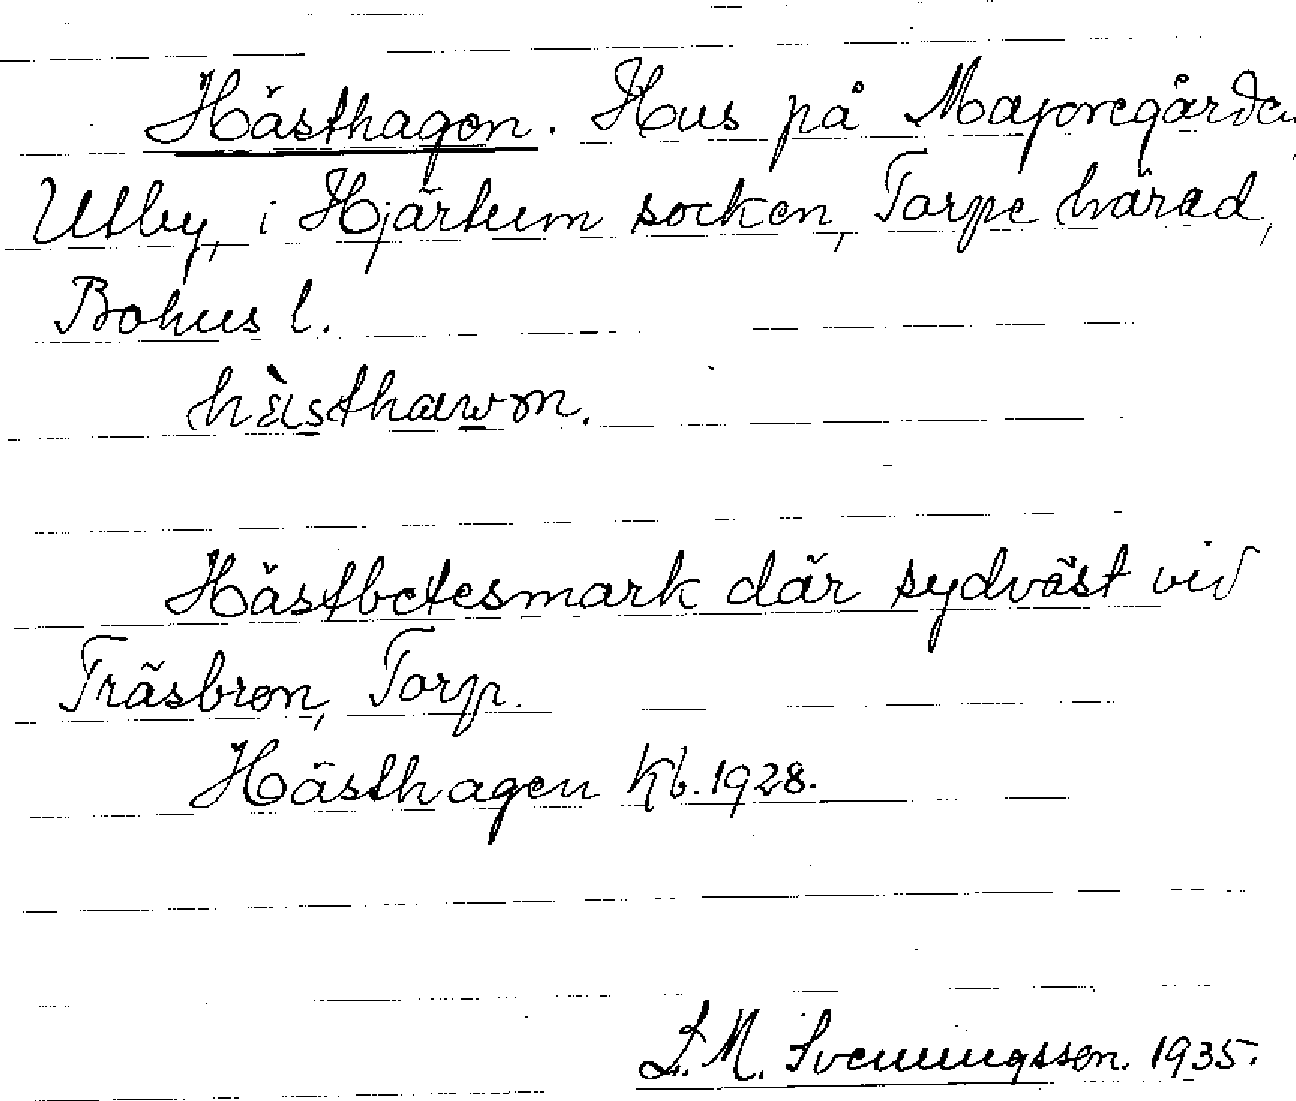 Hästhagen. Hus på Majoregården
Utby, i Hjärtum socken, Torpe härad,
Bohus l.
Hästbetesmark där sydväst vid
Träsbron, Torp.
Hästhagen Kb. 1928.
L. M. Svenungsson. 1935.